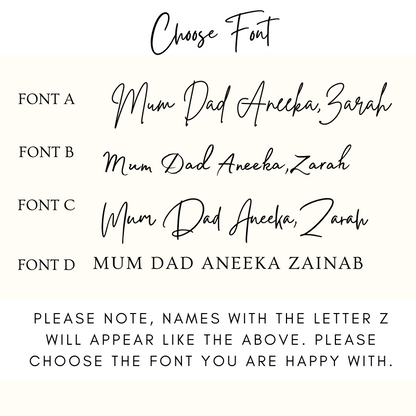 Choose Font
FONT A Mum Dad Aneeka, Zarah
FONT B Mum Dad Aneeka, Zarah
FONT C Mum Dad Aneeka, Zarah
FONT D MUM DAD ANEEKA ZAINAB
PLEASE NOTE, NAMES WITH THE LETTER Z
WILL APPEAR LIKE THE ABOVE. PLEASE
CHOOSE THE FONT YOU ARE HAPPY WITH.